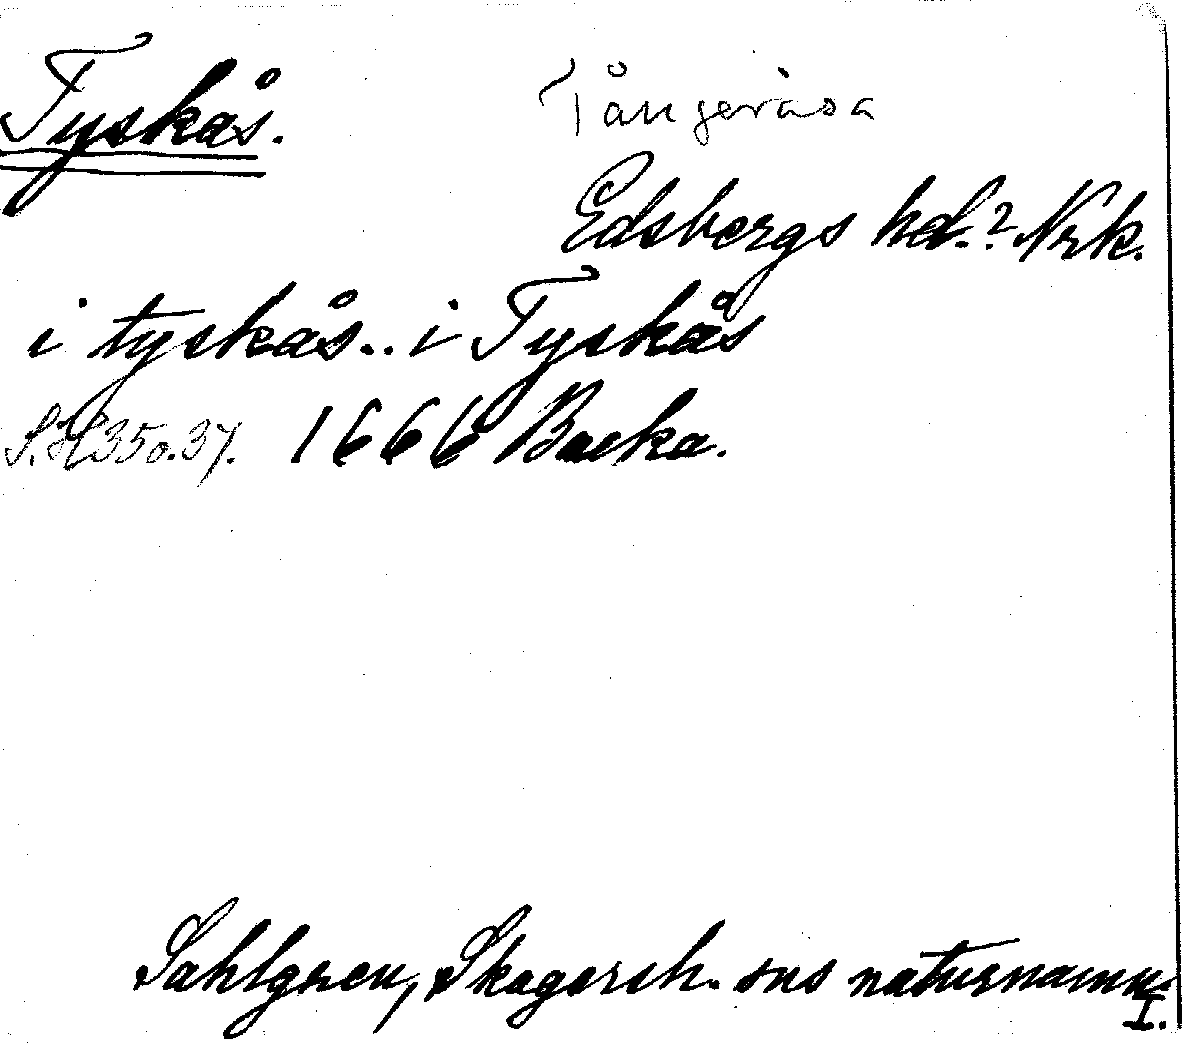 Tyskås.
Tångeråsa
Edsbergs hd.? Nrk.
i tyskås... i Tyskås
S.H 350.37. 1666 Backa.
Sahlgren, Skagersh. sns naturnamn
I.